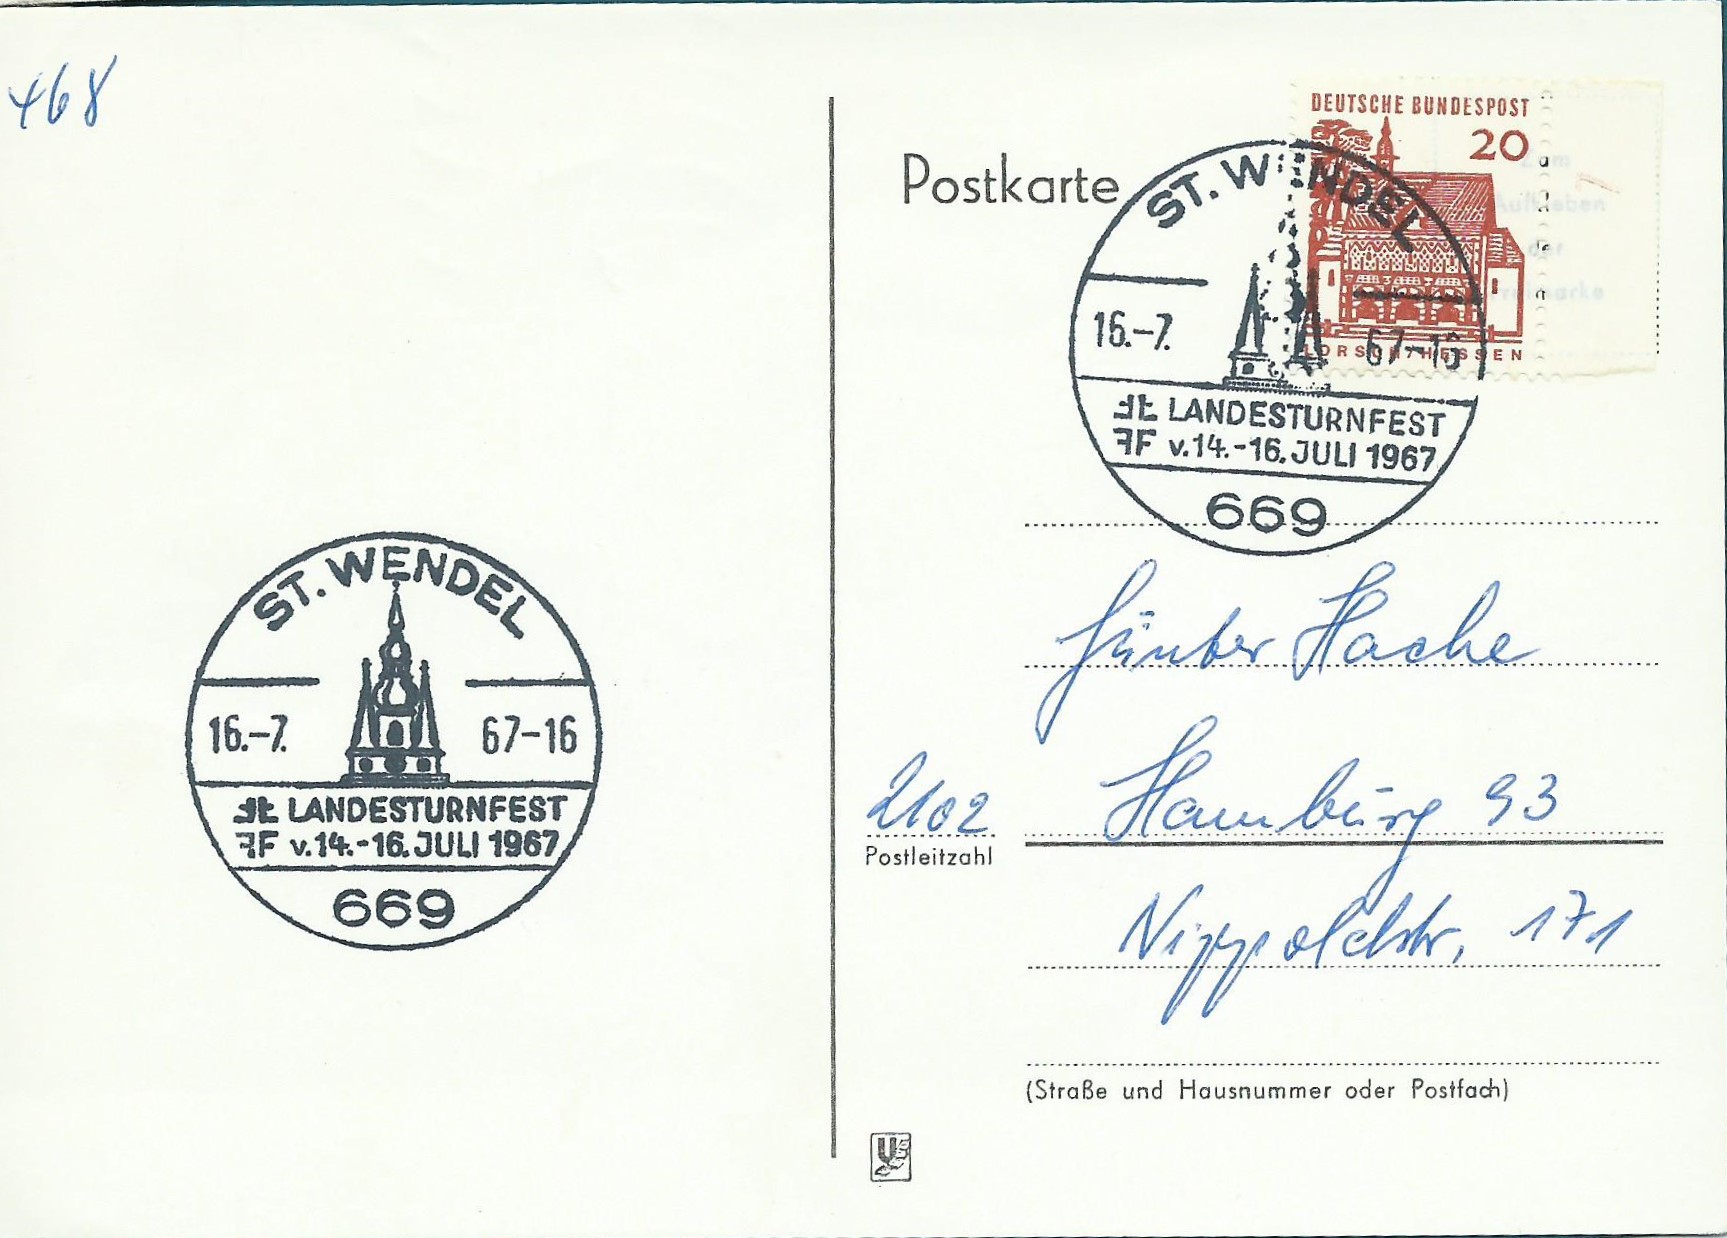 468
Postkarte
DEUTSCHE BUNDESPOST
20
LORSCH/HESSEN
Zum
Aufkleben
der
Freimarke
ST. WENDEL
16.-7. 67-16
LANDESTURNFEST
v. 14.-16. JULI 1967
669
Günter Hache
2102 Hamburg 93
Postleitzahl
Nippoldstr. 171
(Straße und Hausnummer oder Postfach)
ST. WENDEL
16.-7. 67-16
LANDESTURNFEST
v. 14.-16. JULI 1967
669